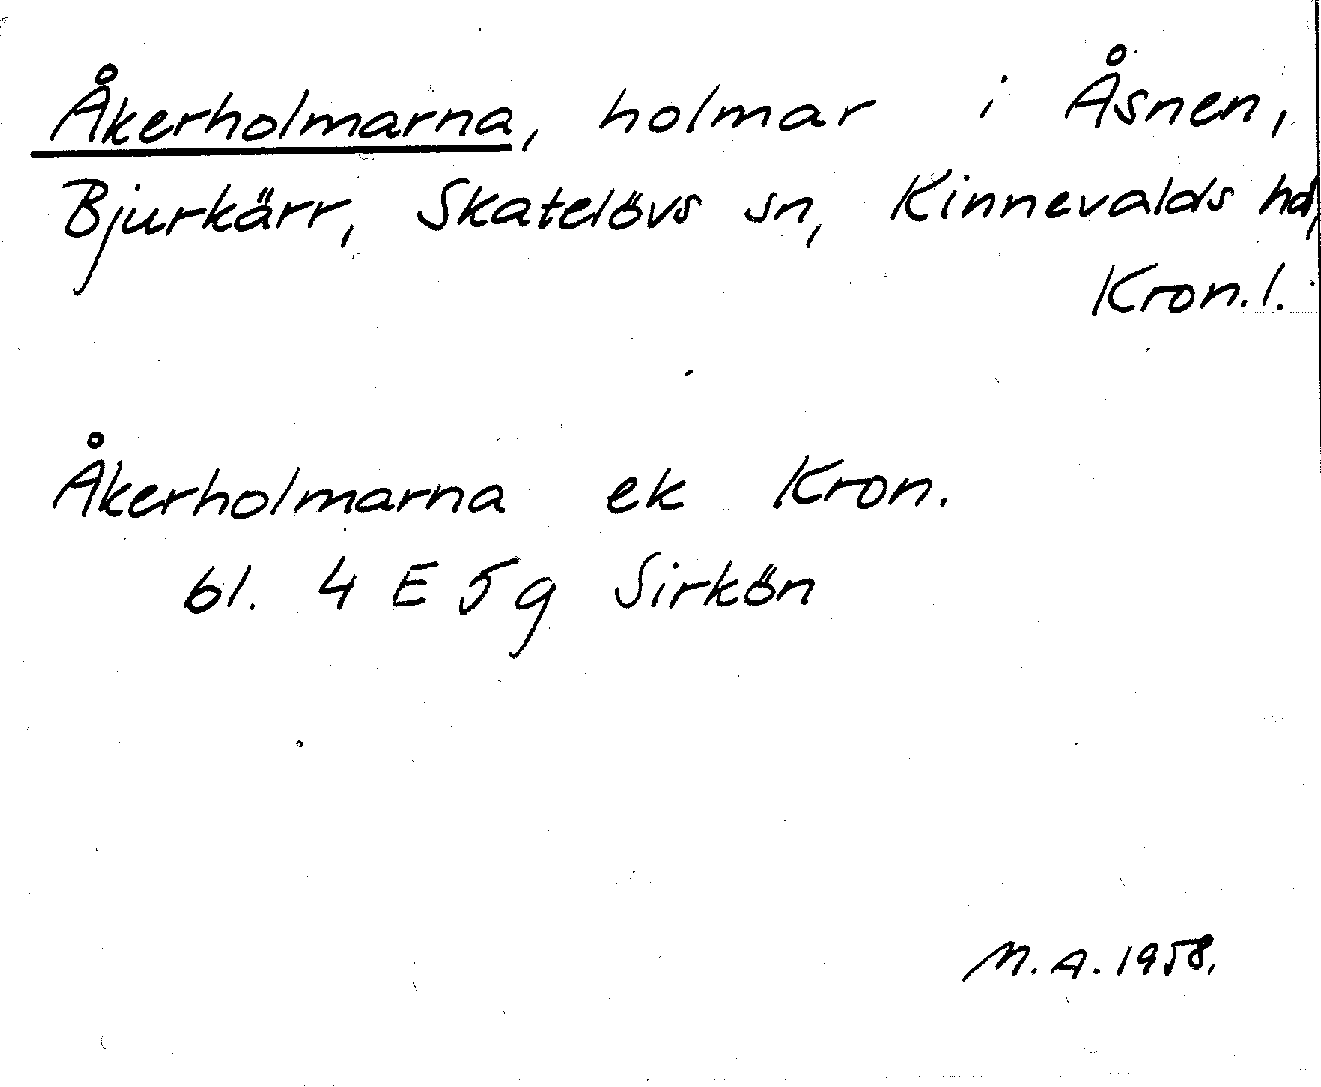 Åkerholmarna, holmar i Åsnen,
Bjurkärr, Skatelövs sn, Kinnevalds hd,
Kron.l.
Åkerholmarna ek Kron.
bl. 4 E 5 g Sirkön
M.A. 1958.